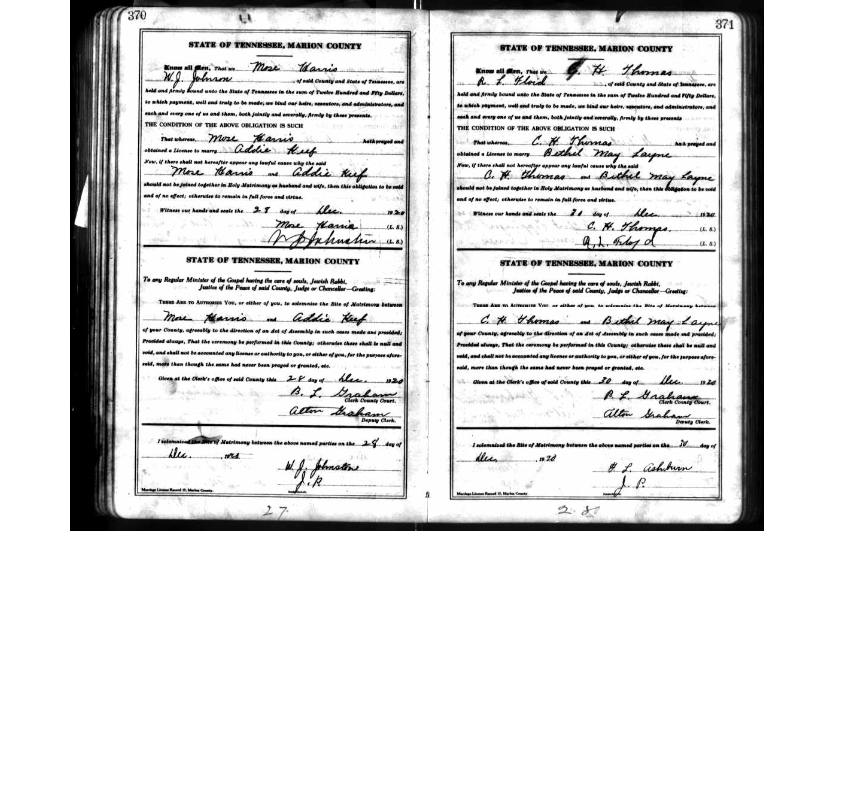 370
STATE OF TENNESSEE, MARION COUNTY
Know all Men, That we Mose Harris
W. J. Johnson , of said County and State of Tennessee, are
held and firmly bound unto the State of Tennessee in the sum of Twelve Hundred and Fifty Dollars,
to which payment, well and truly to be made, we bind our heirs, executors, and administrators, and
each and every one of us and them, both jointly and severally, firmly by these presents.
THE CONDITION OF THE ABOVE OBLIGATION IS SUCH
That whereas, Mose Harris hath prayed and
obtained a License to marry Addie Keef
Now, if there shall not hereafter appear any lawful cause why the said
Mose Harris and Addie Keef
should not be joined together in Holy Matrimony as husband and wife, then this obligation to be void
and of no effect; otherwise to remain in full force and virtue.
Witness our hands and seals the 28 day of Dec. 1920
Mose Harris (L. S.)
W J Johnston (L. S.)
STATE OF TENNESSEE, MARION COUNTY
To any Regular Minister of the Gospel having the care of souls, Jewish Rabbi,
Justice of the Peace of said County, Judge or Chancellor—Greeting:
THESE ARE TO AUTHORIZE YOU, or either of you, to solemnize the Rite of Matrimony between
Mose Harris and Addie Keef
of your County, agreeably to the direction of an Act of Assembly in such cases made and provided;
Provided always, That the ceremony be performed in this County; otherwise these shall be null and
void, and shall not be accounted any license or authority to you, or either of you, for the purpose afore-
said, more than though the same had never been prayed or granted, etc.
Given at the Clerk's office of said County this 28 day of Dec. 1920
B. L. Graham
Clerk County Court.
Alton Graham
Deputy Clerk.
I solemnized the Rite of Matrimony between the above named parties on the 28 day of
Dec. , 1920
W. J. Johnston
J. P.
Marriage License Record 17, Marion County.
27
371
STATE OF TENNESSEE, MARION COUNTY
Know all Men, That we C. H. Thomas
R. L. Floid , of said County and State of Tennessee, are
held and firmly bound unto the State of Tennessee in the sum of Twelve Hundred and Fifty Dollars,
to which payment, well and truly to be made, we bind our heirs, executors, and administrators, and
each and every one of us and them, both jointly and severally, firmly by these presents.
THE CONDITION OF THE ABOVE OBLIGATION IS SUCH
That whereas, C. H. Thomas hath prayed and
obtained a License to marry Bethel May Layne
Now, if there shall not hereafter appear any lawful cause why the said
C. H. Thomas and Bethel May Layne
should not be joined together in Holy Matrimony as husband and wife, then this obligation to be void
and of no effect; otherwise to remain in full force and virtue.
Witness our hands and seals the 30 day of Dec 1920
C. H. Thomas. (L. S.)
R. L. Floyd (L. S.)
STATE OF TENNESSEE, MARION COUNTY
To any Regular Minister of the Gospel having the care of souls, Jewish Rabbi,
Justice of the Peace of said County, Judge or Chancellor—Greeting:
THESE ARE TO AUTHORIZE YOU, or either of you, to solemnize the Rite of Matrimony between
C. H. Thomas and Bethel May Layne
of your County, agreeably to the direction of an Act of Assembly in such cases made and provided;
Provided always, That the ceremony be performed in this County; otherwise these shall be null and
void, and shall not be accounted any license or authority to you, or either of you, for the purpose afore-
said, more than though the same had never been prayed or granted, etc.
Given at the Clerk's office of said County this 30 day of Dec. 1920
B. L. Graham
Clerk County Court.
Alton Graham
Deputy Clerk.
I solemnized the Rite of Matrimony between the above named parties on the 30 day of
Dec , 1920
H. L. Ashburn
J. P.
Marriage License Record 17, Marion County.
28